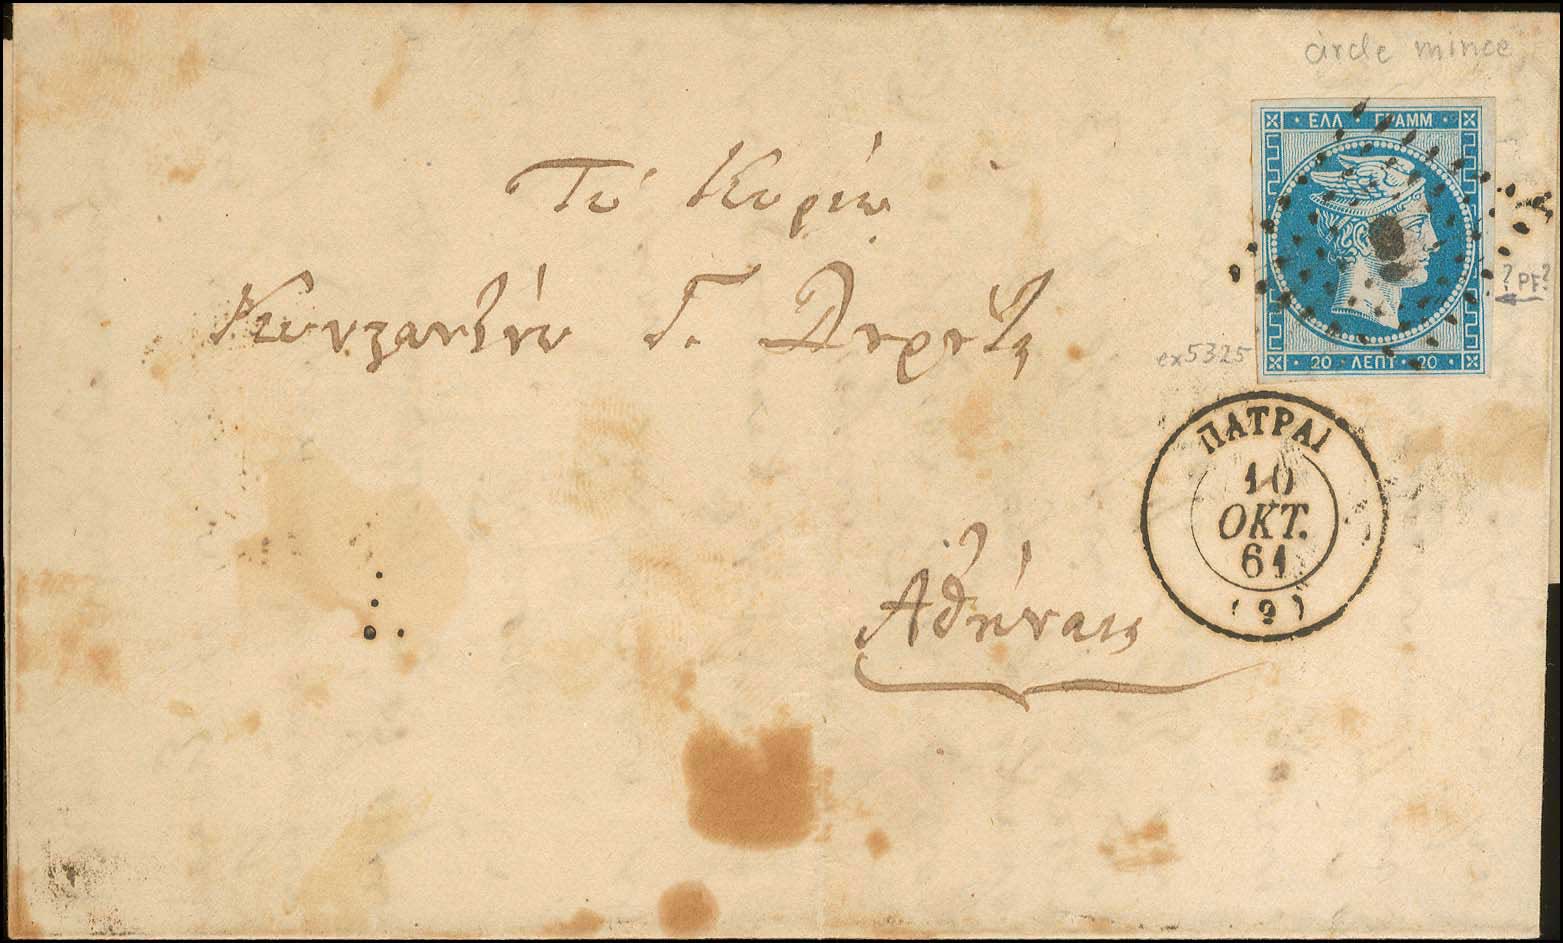 circle mince
ΕΛΛ ΓΡΑΜΜ
Τῷ Κυρίῳ
? PF?
Κωνσταντίνῳ Γ.
ex5325
20 ΛΕΠΤ 20
ΠΑΤΡΑΙ
10
ΟΚΤ.
61
(9)
Ἀθήνας